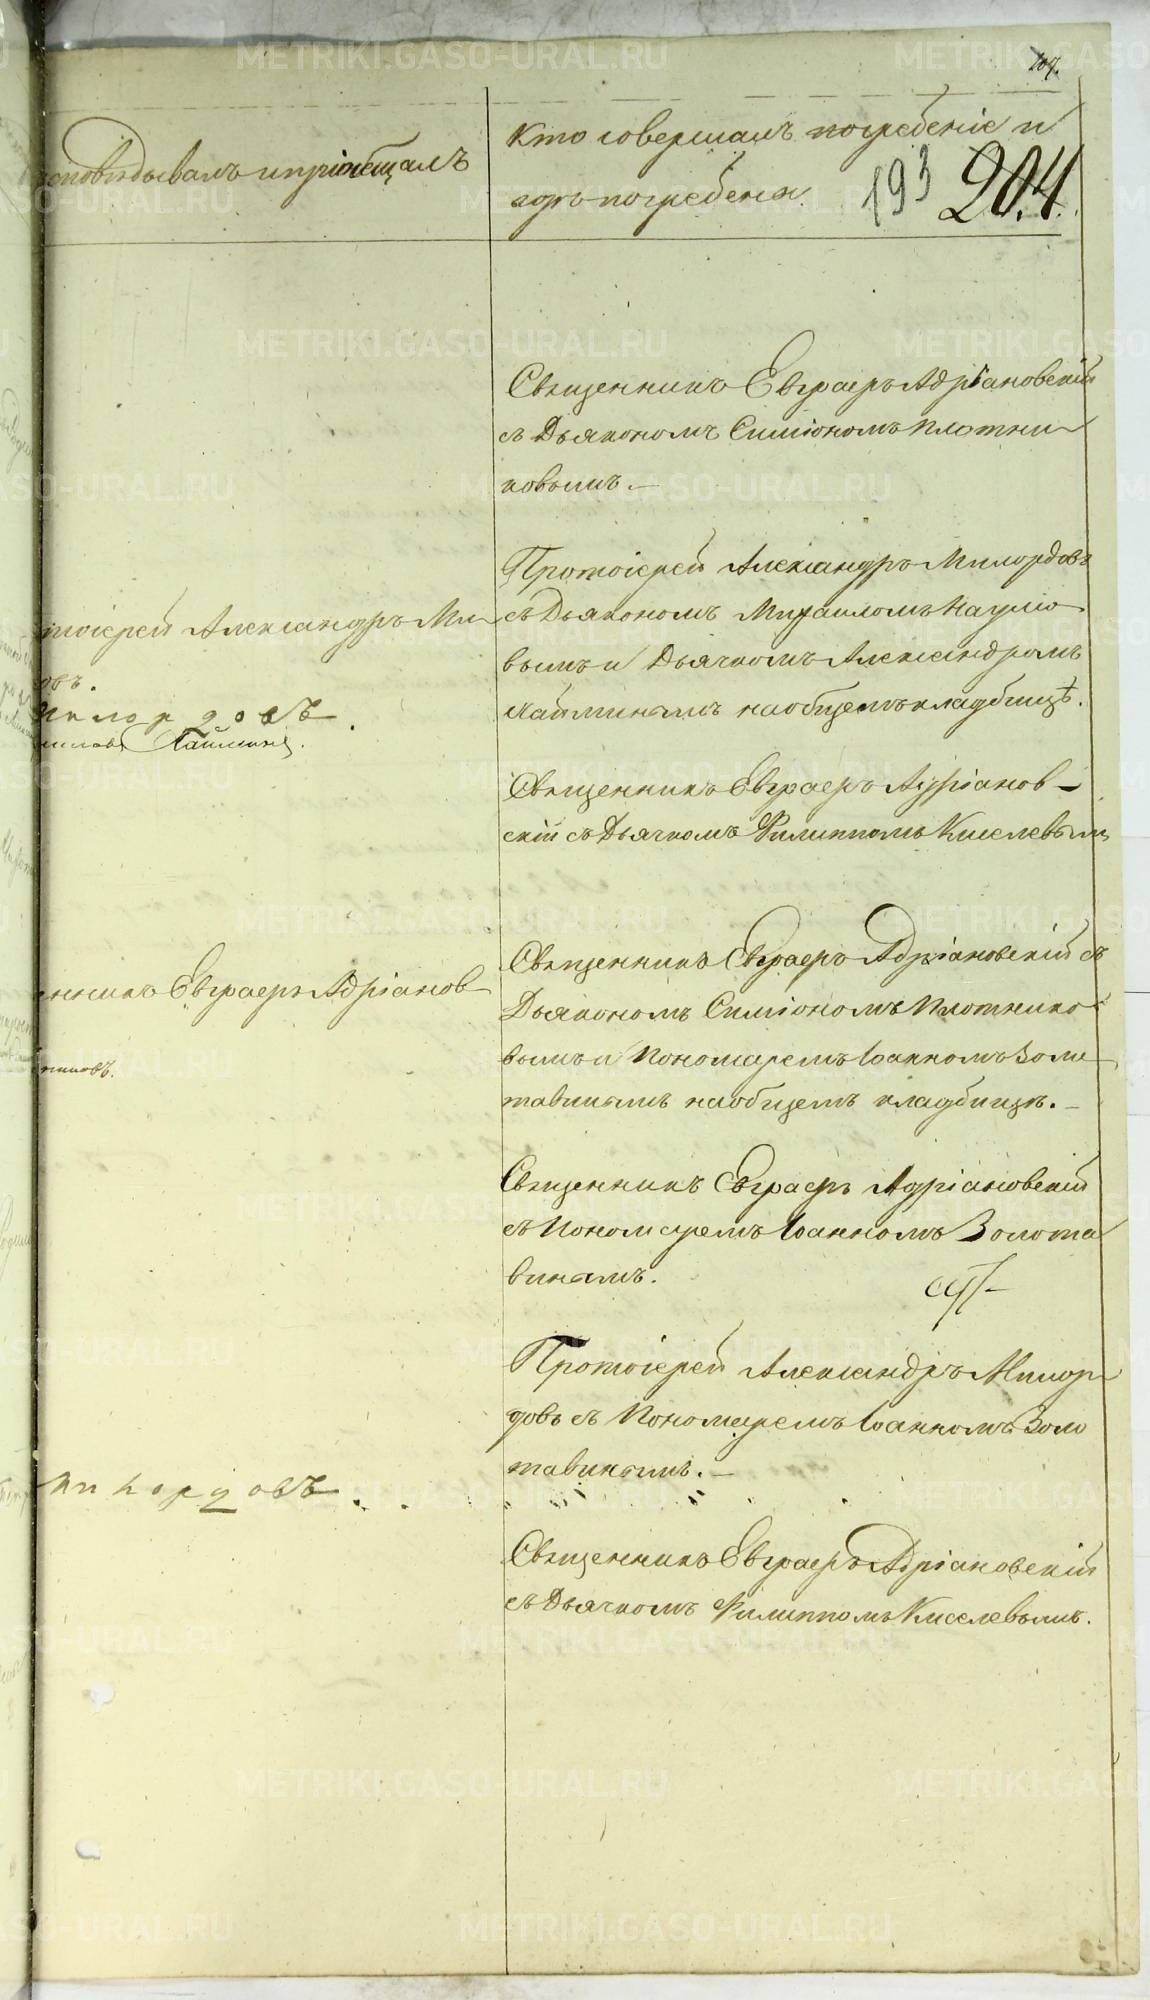 107.
исповѣдывалъ и пріобщалъ
Кто совершалъ погребеніе и
гдѣ погребены.
193 204.
Священникъ Евграфъ Адріановскій
съ Дьякономъ Симіономъ Плотни
ковымъ.
Протоіерей Александръ Милордовъ
съ Дьякономъ Михаиломъ Наумо
вымъ и Дьячкомъ Александромъ
Хайминымъ на общемъ кладбищѣ.
тоіерей Александръ Ми
овъ.
Милордовъ.
Хайминъ.
Священникъ Евграфъ Адріанов-
скій съ Дьячкомъ Филиппомъ Киселевымъ
Священникъ Евграфъ Адріановскій съ
Дьякономъ Симіономъ Плотнико
вымъ и Пономаремъ Іоанномъ Золо
тавинымъ на общемъ кладбищѣ.
енникъ Евграфъ Адріанов
никовъ.
Священникъ Евграфъ Адріановскій
съ Пономаремъ Іоанномъ Золота
винымъ.
Протоіерей Александръ Милор
довъ съ Пономаремъ Іоанномъ Золо
тавинымъ.
Милордовъ.
Священникъ Евграфъ Адріановскій
съ Дьячкомъ Филиппомъ Киселевымъ.
METRIKI.GASO-URAL.RU